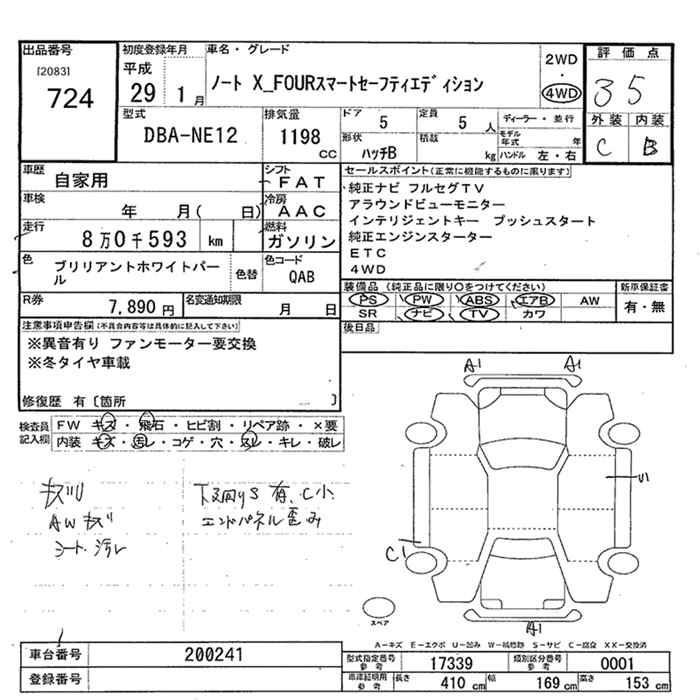 出品番号
[2083]
724
初度登録年月
平成
29 1月
車名・グレード
ノート X_FOURスマートセーフティエディション
2WD
・
4WD
評価点
35
外装 内装
C B
型式
DBA-NE12
排気量
1198
CC
ドア
5
定員
5 人
ディーラー・並行
形状
ハッチB
積載
kg
モデル年式 年
ハンドル 左・右
車歴
自家用
シフト
FAT
車検
年 月( 日)
冷房
AAC
走行
8万0千593 km
燃料
ガソリン
色
ブリリアントホワイトパール
色替
色コード
QAB
R券
7,890円
名変通知期限
月 日
セールスポイント(正常に機能するものに限ります)
純正ナビ フルセグTV
アラウンドビューモニター
インテリジェントキー プッシュスタート
純正エンジンスターター
ETC
4WD
装備品(純正品に限り○をつけてください)
PS PW ABS エアB AW
SR ナビ TV カワ
新車保証書
有・無
後日品
注意事項申告欄(不具合内容等は具体的に記入して下さい)
※異音有り ファンモーター要交換
※冬タイヤ車載
修復歴 有〔箇所 〕
検査員記入欄
FW キズ・飛石・ヒビ割・リペア跡・×要
内装 キズ・汚レ・コゲ・穴・スレ・キレ・破レ
キズU
AWキズ
シート汚レ
下廻りS有、C小
エンドパネル歪み
A1 A1
U1
C1
A1
スペア
A-キズ E-エクボ U-凹み W-補修跡 S-サビ C-腐食 XX-交換済
車台番号
200241
登録番号
型式指定番号
参考
17339
類別区分番号
参考
0001
車庫証明用
参考
長さ 410cm 幅 169cm 高さ 153cm